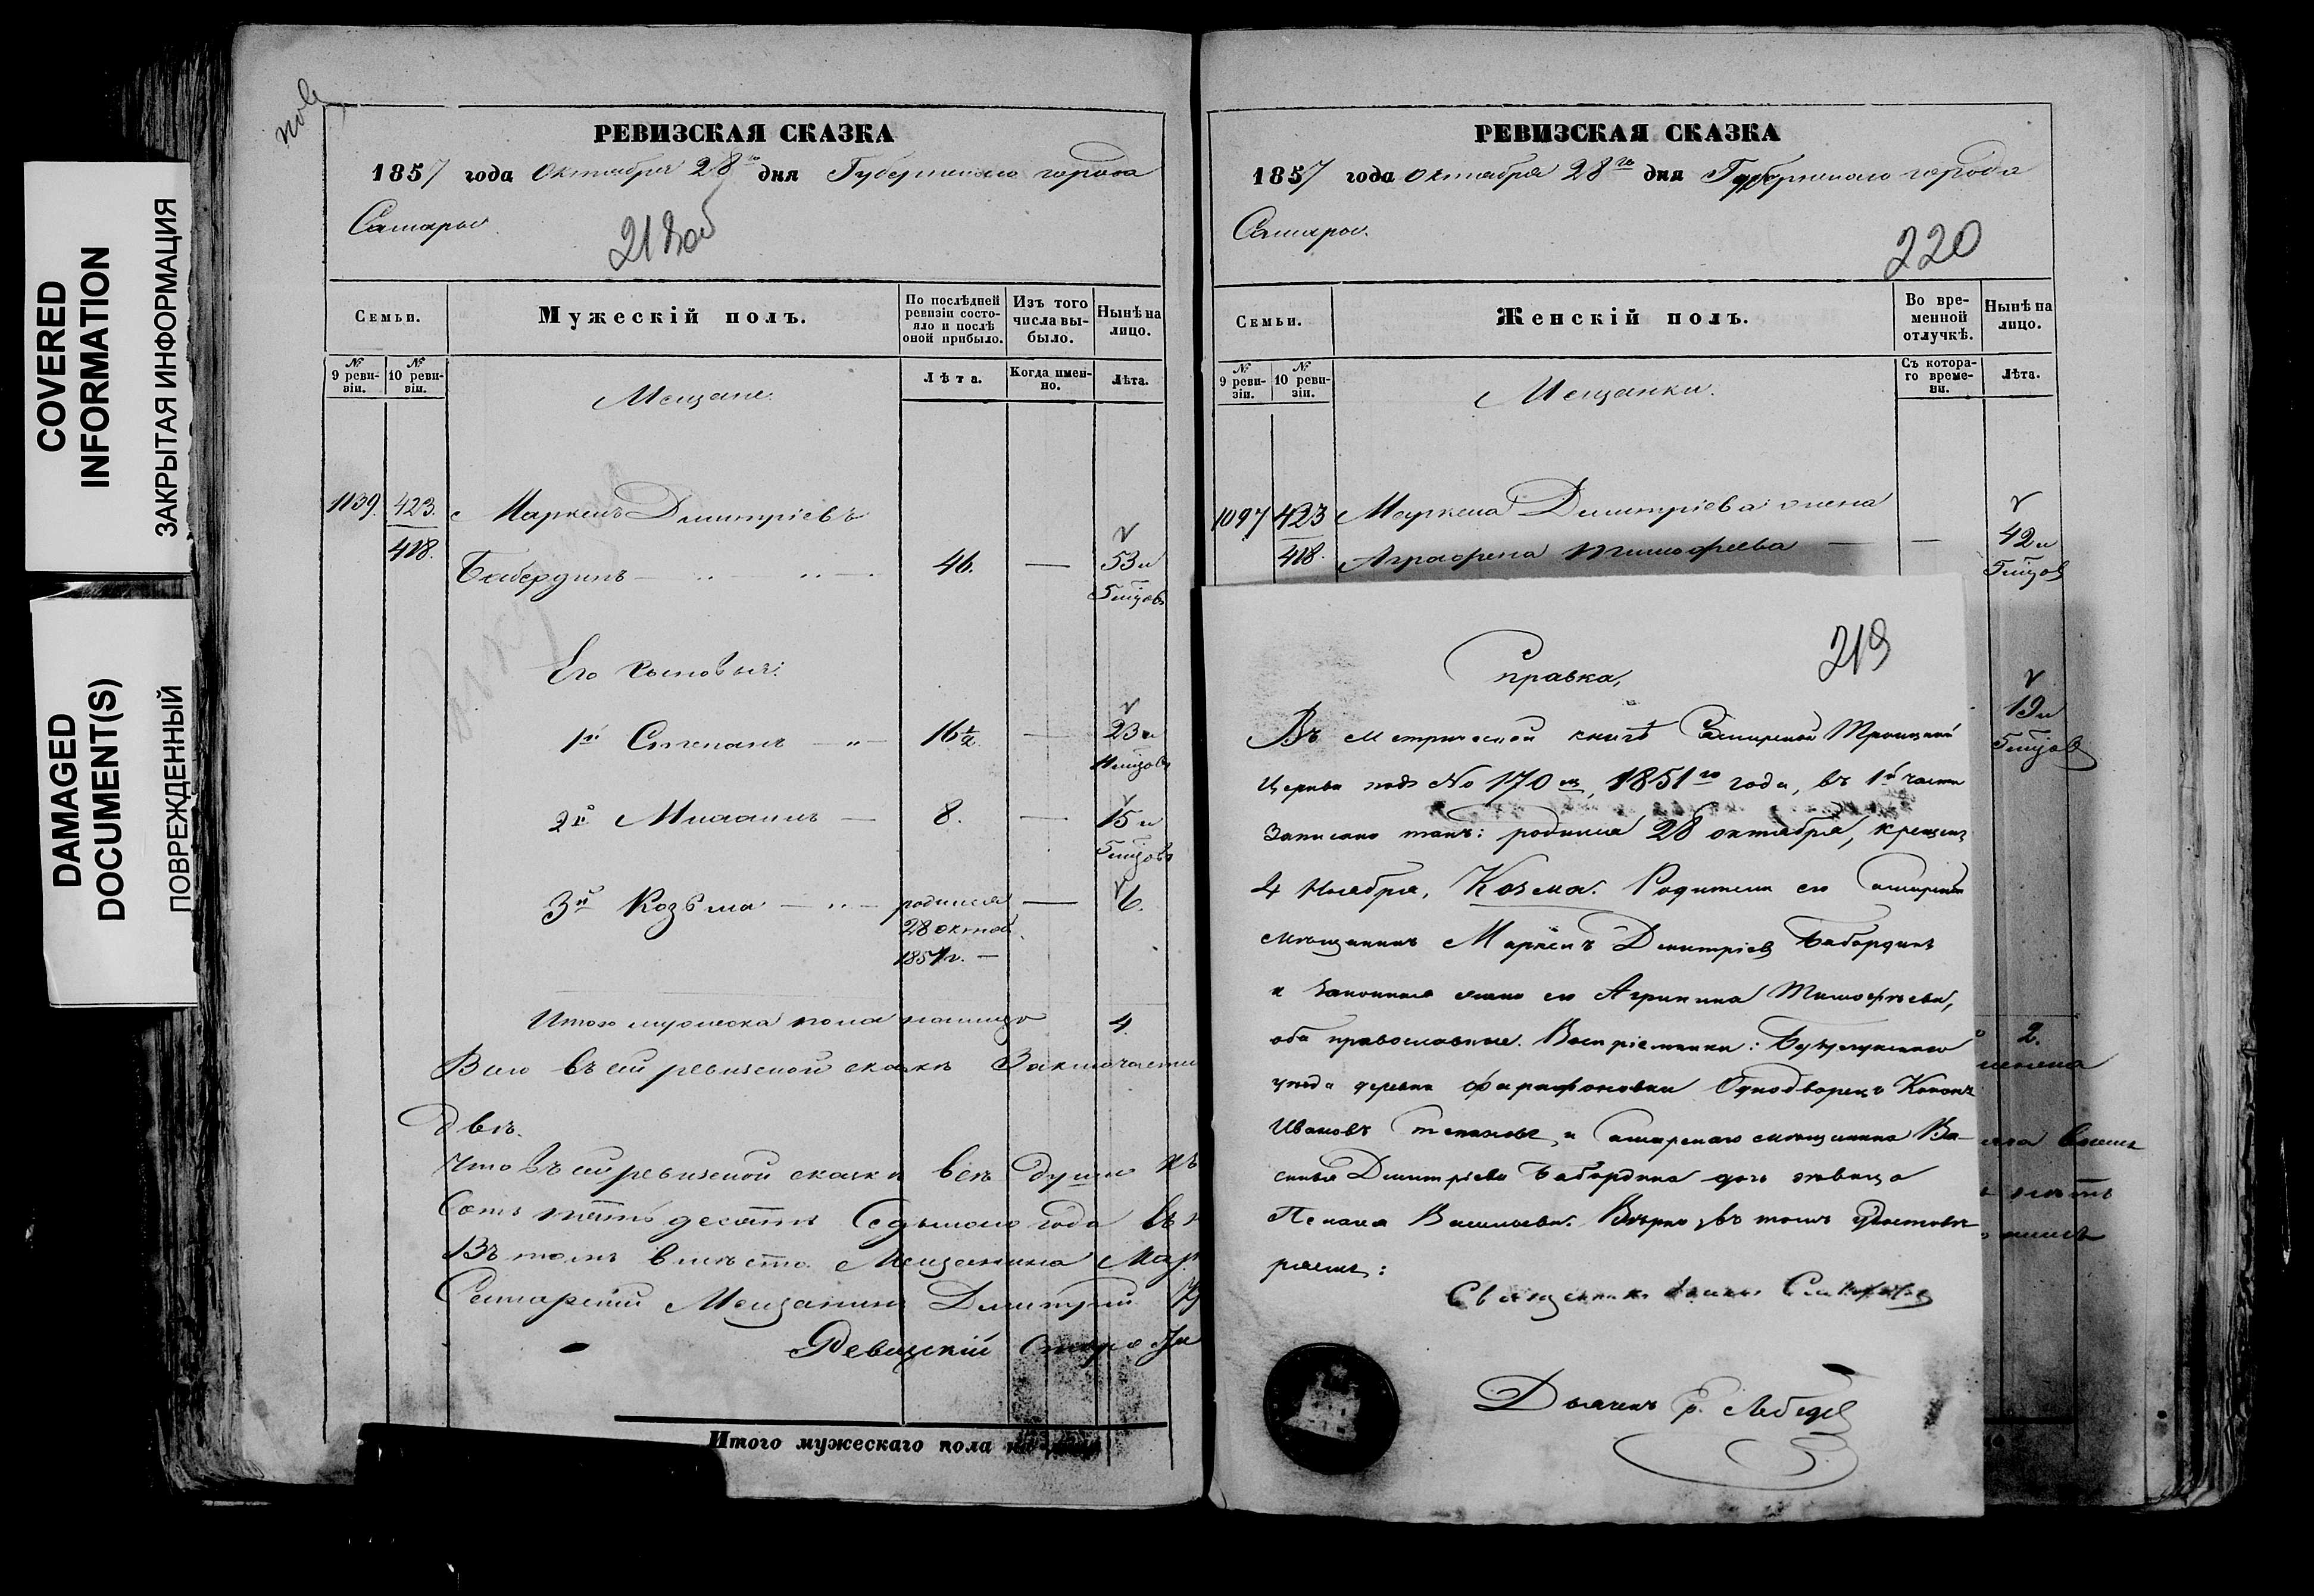 COVERED
INFORMATION
ЗАКРЫТАЯ ИНФОРМАЦИЯ
DAMAGED
DOCUMENT(S)
ПОВРЕЖДЕННЫЙ
РЕВИЗСКАЯ СКАЗКА
1857 года Октября 28го дня Губернскаго города
Самары.
218об
Семьи.
Мужескій полъ.
По послѣдней ревизіи состояло и послѣ оной прибыло.
Изъ того числа выбыло.
Нынѣ на лицо.
№ 9 ревизіи.
№ 10 ревизіи.
Мещане.
Лѣта.
Когда именно.
Лѣта.
1139. 423. Маркелъ Дмитріевъ
418. Бабердинъ 46. — 53 и
5 мѣцовъ
Его сыновья:
1й Степанъ 16½ — 23 и
мѣцовъ
2й Михаилъ — 8. — 15 и
5 мѣцовъ
3й Козьма — родился — 6.
28 октяб.
1851 г. —
Итого мужеска пола налицо 4.
Всего въ сей ревизской сказкѣ Заключается
двѣ.
Что въ сей ревизской сказки всѣ души
Сотъ пятьдесятъ Седьмого года
Въ томъ вместо Мещанина Мар
Самарскій Мещанинъ Дмитрій
Ревизскій
Итого мужескаго пола на лицо
РЕВИЗСКАЯ СКАЗКА
1857 года Октября 28го дня Губернскаго города
Самары.
220
Семьи.
Женскій полъ.
Во временной отлучкѣ.
Нынѣ на лицо.
№ 9 ревизіи.
№ 10 ревизіи.
Мещанки.
Съ котораго времени.
Лѣта.
1097 423 Маркела Дмитріева жена
418. Аграфена Тимофеева — — 42 и
5 мѣцов
19 и
5 мѣцов
2.
219
Справка.
Въ метрической книгѣ Самарской Троицкой
Церкви подъ No 170 м, 1851го года, въ 1й части
записано такъ: родился 28 октября, крещенъ
4 Ноября, Козма. Родители его Самарскій
мѣщанинъ Маркелъ Дмитріевъ Бабординъ
и законная жена его Агрипина Тимофѣева,
оба православные. Воспріемники: Бузулукскаго
уѣзда деревни Фарафоновки Однодворецъ Кононъ
Ивановъ и Самарскаго мѣщанина Ва-
силья Дмитріева Бабордина дочь дѣвица
Пелагея Васильева. Вѣрно, въ томъ удостовѣ-
ряемъ:
Священникъ
Дьячекъ Лебедев